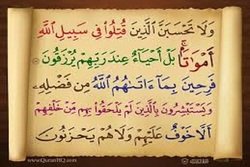 وَلَا تَحْسَبَنَّ الَّذِينَ قُتِلُوا فِي سَبِيلِ اللَّهِ
أَمْوَاتًا بَلْ أَحْيَاءٌ عِندَ رَبِّهِمْ يُرْزَقُونَ
فَرِحِينَ بِمَا آتَاهُمُ اللَّهُ مِن فَضْلِهِ
وَيَسْتَبْشِرُونَ بِالَّذِينَ لَمْ يَلْحَقُوا بِهِم مِّنْ خَلْفِهِمْ
أَلَّا خَوْفٌ عَلَيْهِمْ وَلَا هُمْ يَحْزَنُونَ
www.QuranHQ.com